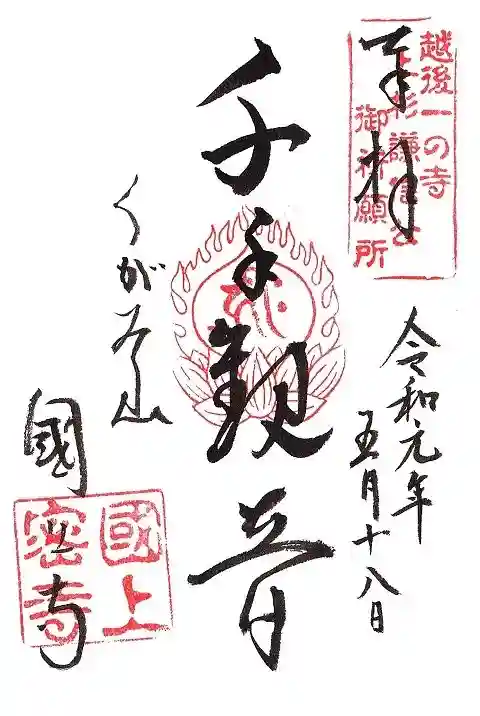 奉拝
越後一の寺
上杉謙信公
御祈願所
令和元年
五月十八日
千手観音
くがみ山
國上寺
國上
密寺